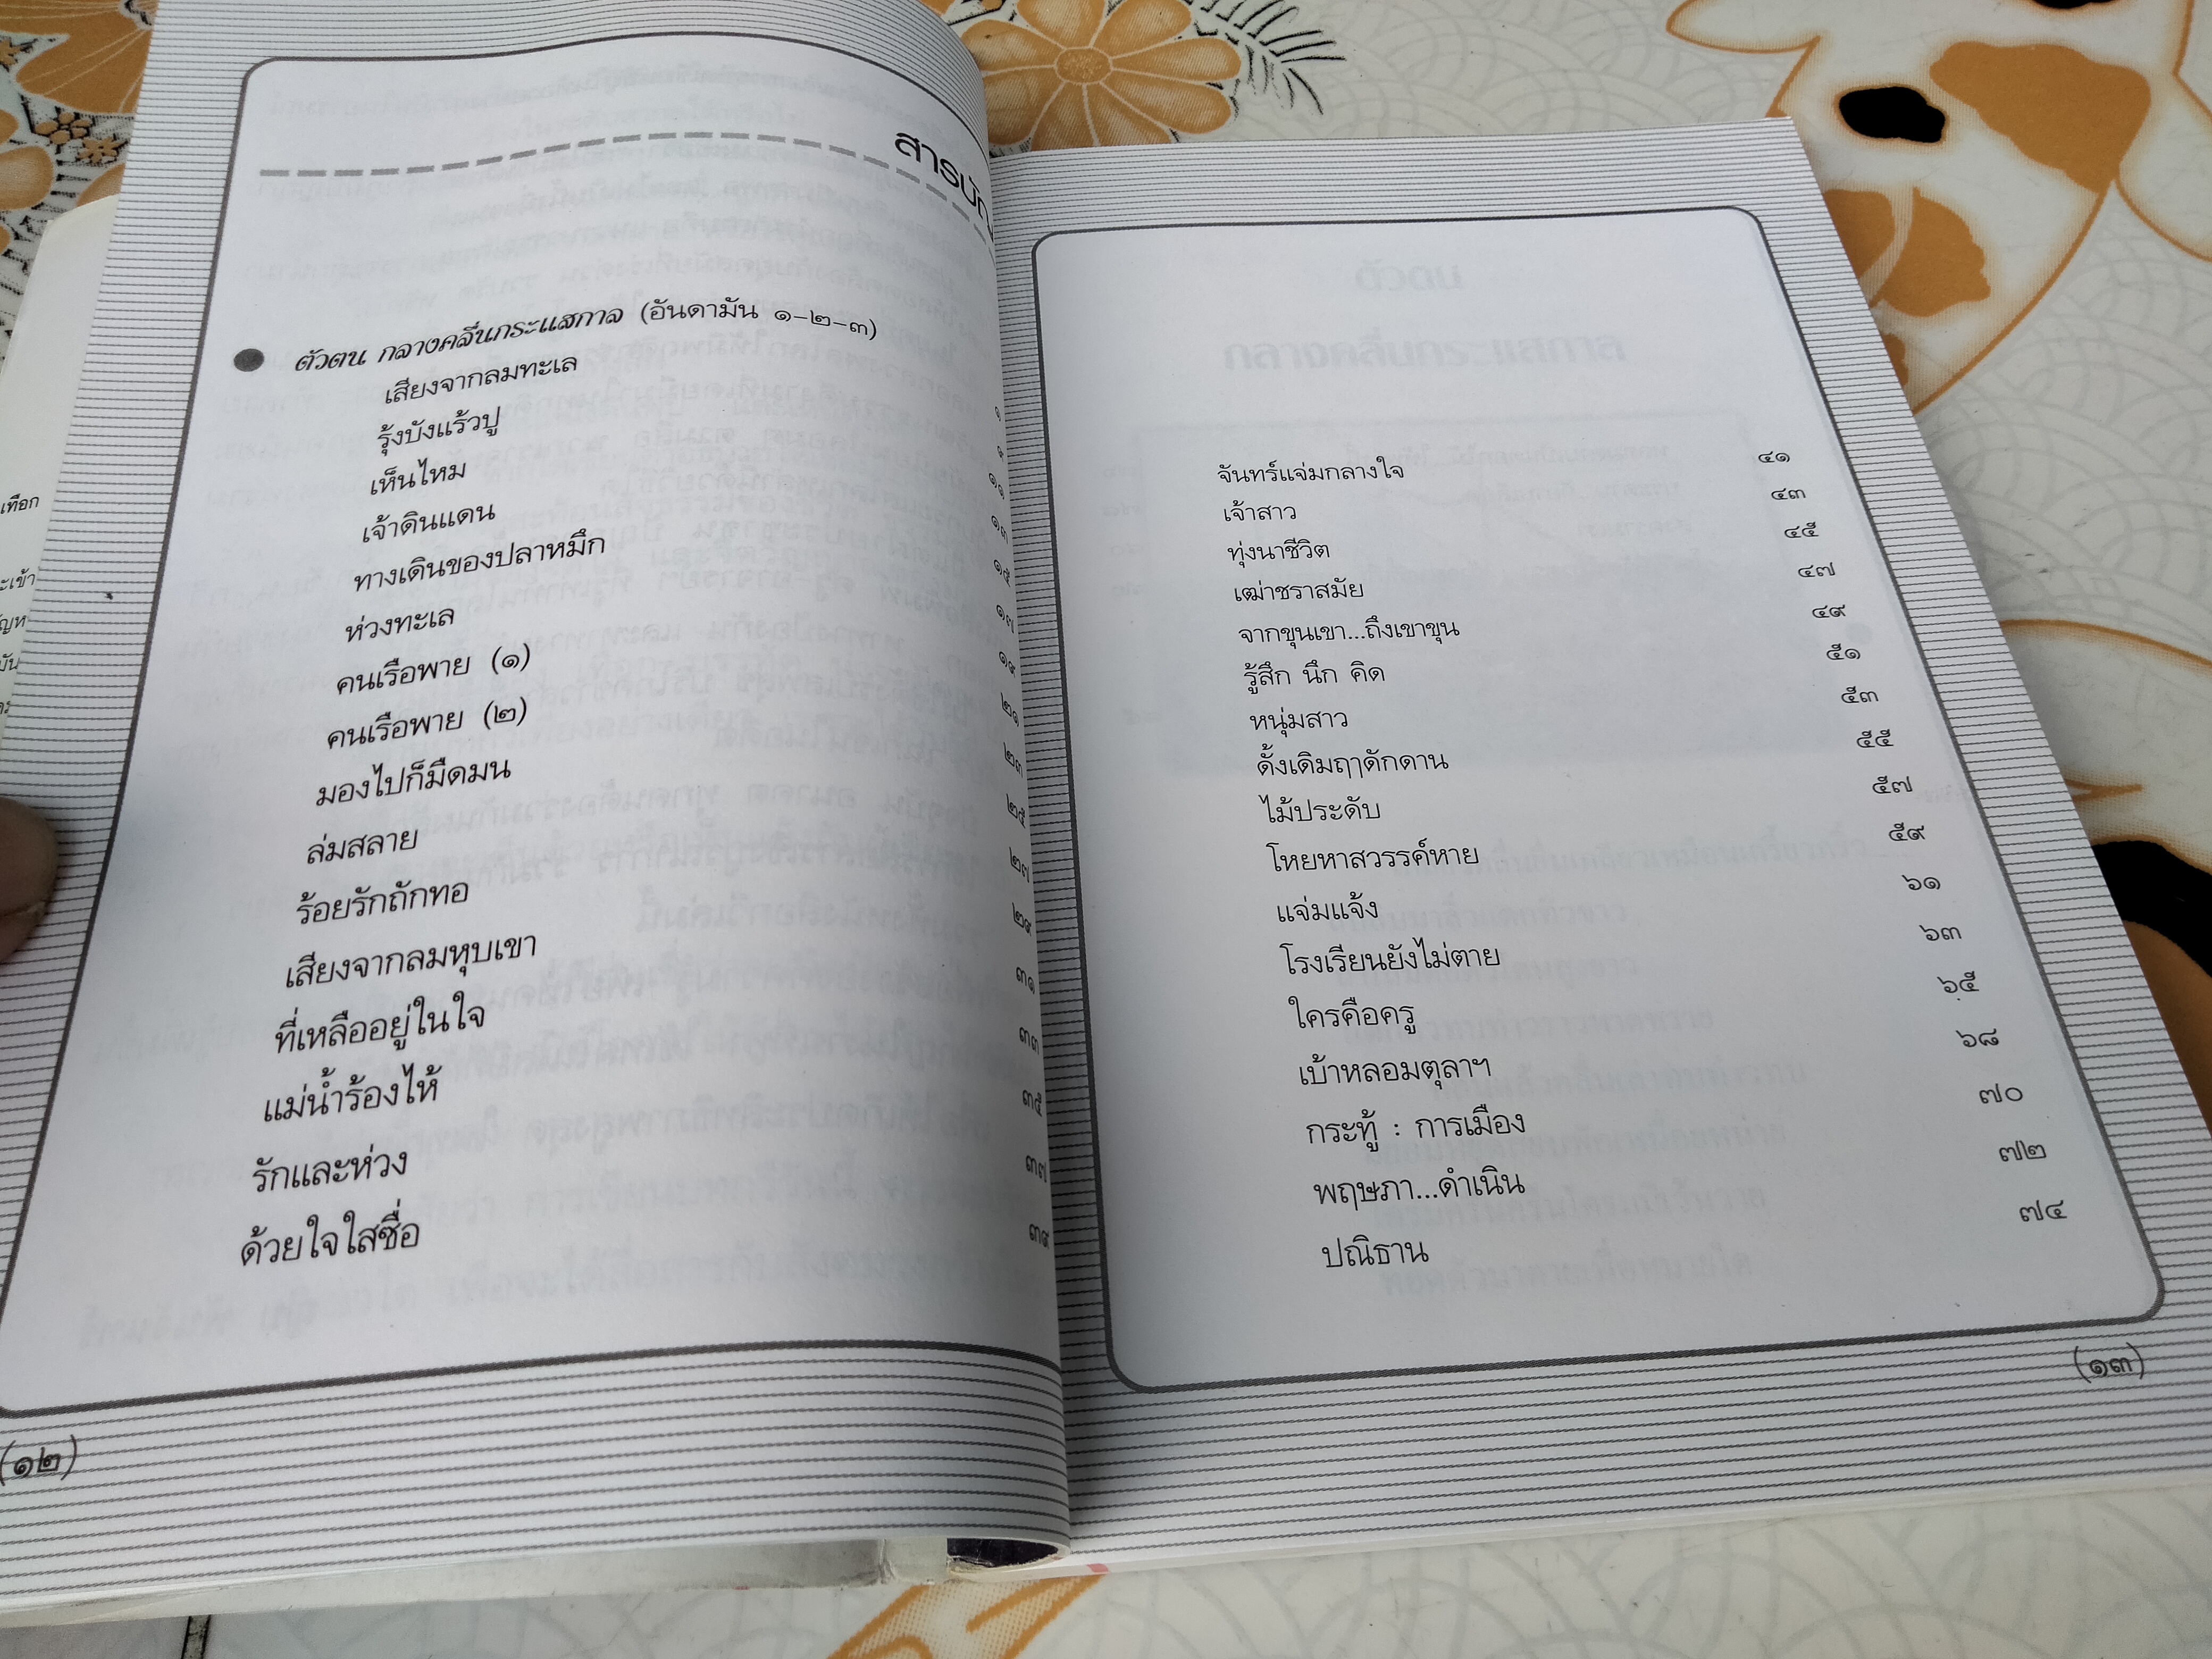 สารบัญ
● ตัวตน กลางคลื่นกระแสกาล (อันดามัน ๑-๒-๓) ๑
เสียงจากลมทะเล ๙
รุ้งบังแร้วปู ๑๑
เห็นไหม ๑๓
เจ้าดินแดน ๑๕
ทางเดินของปลาหมึก ๑๗
ห่วงทะเล ๑๙
คนเรือพาย (๑) ๒๑
คนเรือพาย (๒) ๒๓
มองไปก็มืดมน ๒๕
ล่มสลาย ๒๗
ร้อยรักถักทอ ๒๙
เสียงจากลมหุบเขา ๓๑
ที่เหลืออยู่ในใจ ๓๓
แม่น้ำร้องไห้ ๓๕
รักและห่วง ๓๗
ด้วยใจใสซื่อ ๓๙
(๑๒)
จันทร์แจ่มกลางใจ ๔๑
เจ้าสาว ๔๓
ทุ่งนาชีวิต ๔๕
เฒ่าชราสมัย ๔๗
จากขุนเขา...ถึงเขาขุน ๔๙
รู้สึก นึก คิด ๕๑
หนุ่มสาว ๕๓
ดั้งเดิมฤๅดักดาน ๕๕
ไม้ประดับ ๕๗
โหยหาสวรรค์หาย ๕๙
แจ่มแจ้ง ๖๑
โรงเรียนยังไม่ตาย ๖๓
ใครคือครู ๖๕
เบ้าหลอมตุลาฯ ๖๘
กระทู้ : การเมือง ๗๐
พฤษภา...ดำเนิน ๗๒
ปณิธาน ๗๔
(๑๓)